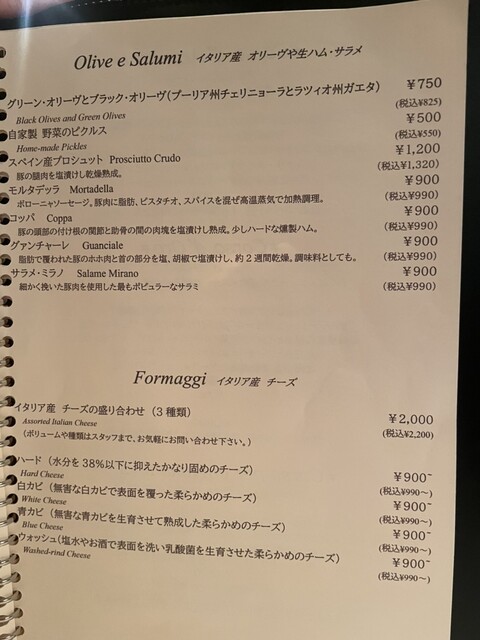 Olive e Salumi イタリア産 オリーヴや生ハム・サラメ
グリーン・オリーヴとブラック・オリーヴ(プーリア州チェリニョーラとラツィオ州ガエタ) ¥750
Black Olives and Green Olives (税込¥825)
自家製 野菜のピクルス ¥500
Home-made Pickles (税込¥550)
スペイン産プロシュット Prosciutto Crudo ¥1,200
豚の腿肉を塩漬けし乾燥熟成。 (税込¥1,320)
モルタデッラ Mortadella ¥900
ボローニャソーセージ。豚肉に脂肪、ピスタチオ、スパイスを混ぜ高温蒸気で加熱調理。 (税込¥990)
コッパ Coppa ¥900
豚の頭部の付け根の関節と肋骨の間の肉塊を塩漬けし熟成。少しハードな燻製ハム。 (税込¥990)
グァンチャーレ Guanciale ¥900
脂肪で覆われた豚のホホ肉と首の部分を塩、胡椒で塩漬けし、約2週間乾燥。調味料としても。 (税込¥990)
サラメ・ミラノ Salame Mirano ¥900
細かく挽いた豚肉を使用した最もポピュラーなサラミ (税込¥990)
Formaggi イタリア産 チーズ
イタリア産 チーズの盛り合わせ (3種類) ¥2,000
Assorted Italian Cheese (税込¥2,200)
(ボリュームや種類はスタッフまで、お気軽にお問い合わせ下さい。)
ハード (水分を38%以下に抑えたかなり固めのチーズ) ¥900~
Hard Cheese (税込¥990~)
白カビ (無害な白カビで表面を覆った柔らかめのチーズ) ¥900~
White Cheese (税込¥990~)
青カビ (無害な青カビを生育させて熟成した柔らかめのチーズ) ¥900~
Blue Cheese (税込¥990~)
ウォッシュ(塩水やお酒で表面を洗い乳酸菌を生育させた柔らかめのチーズ) ¥900~
Washed-rind Cheese (税込¥990~)